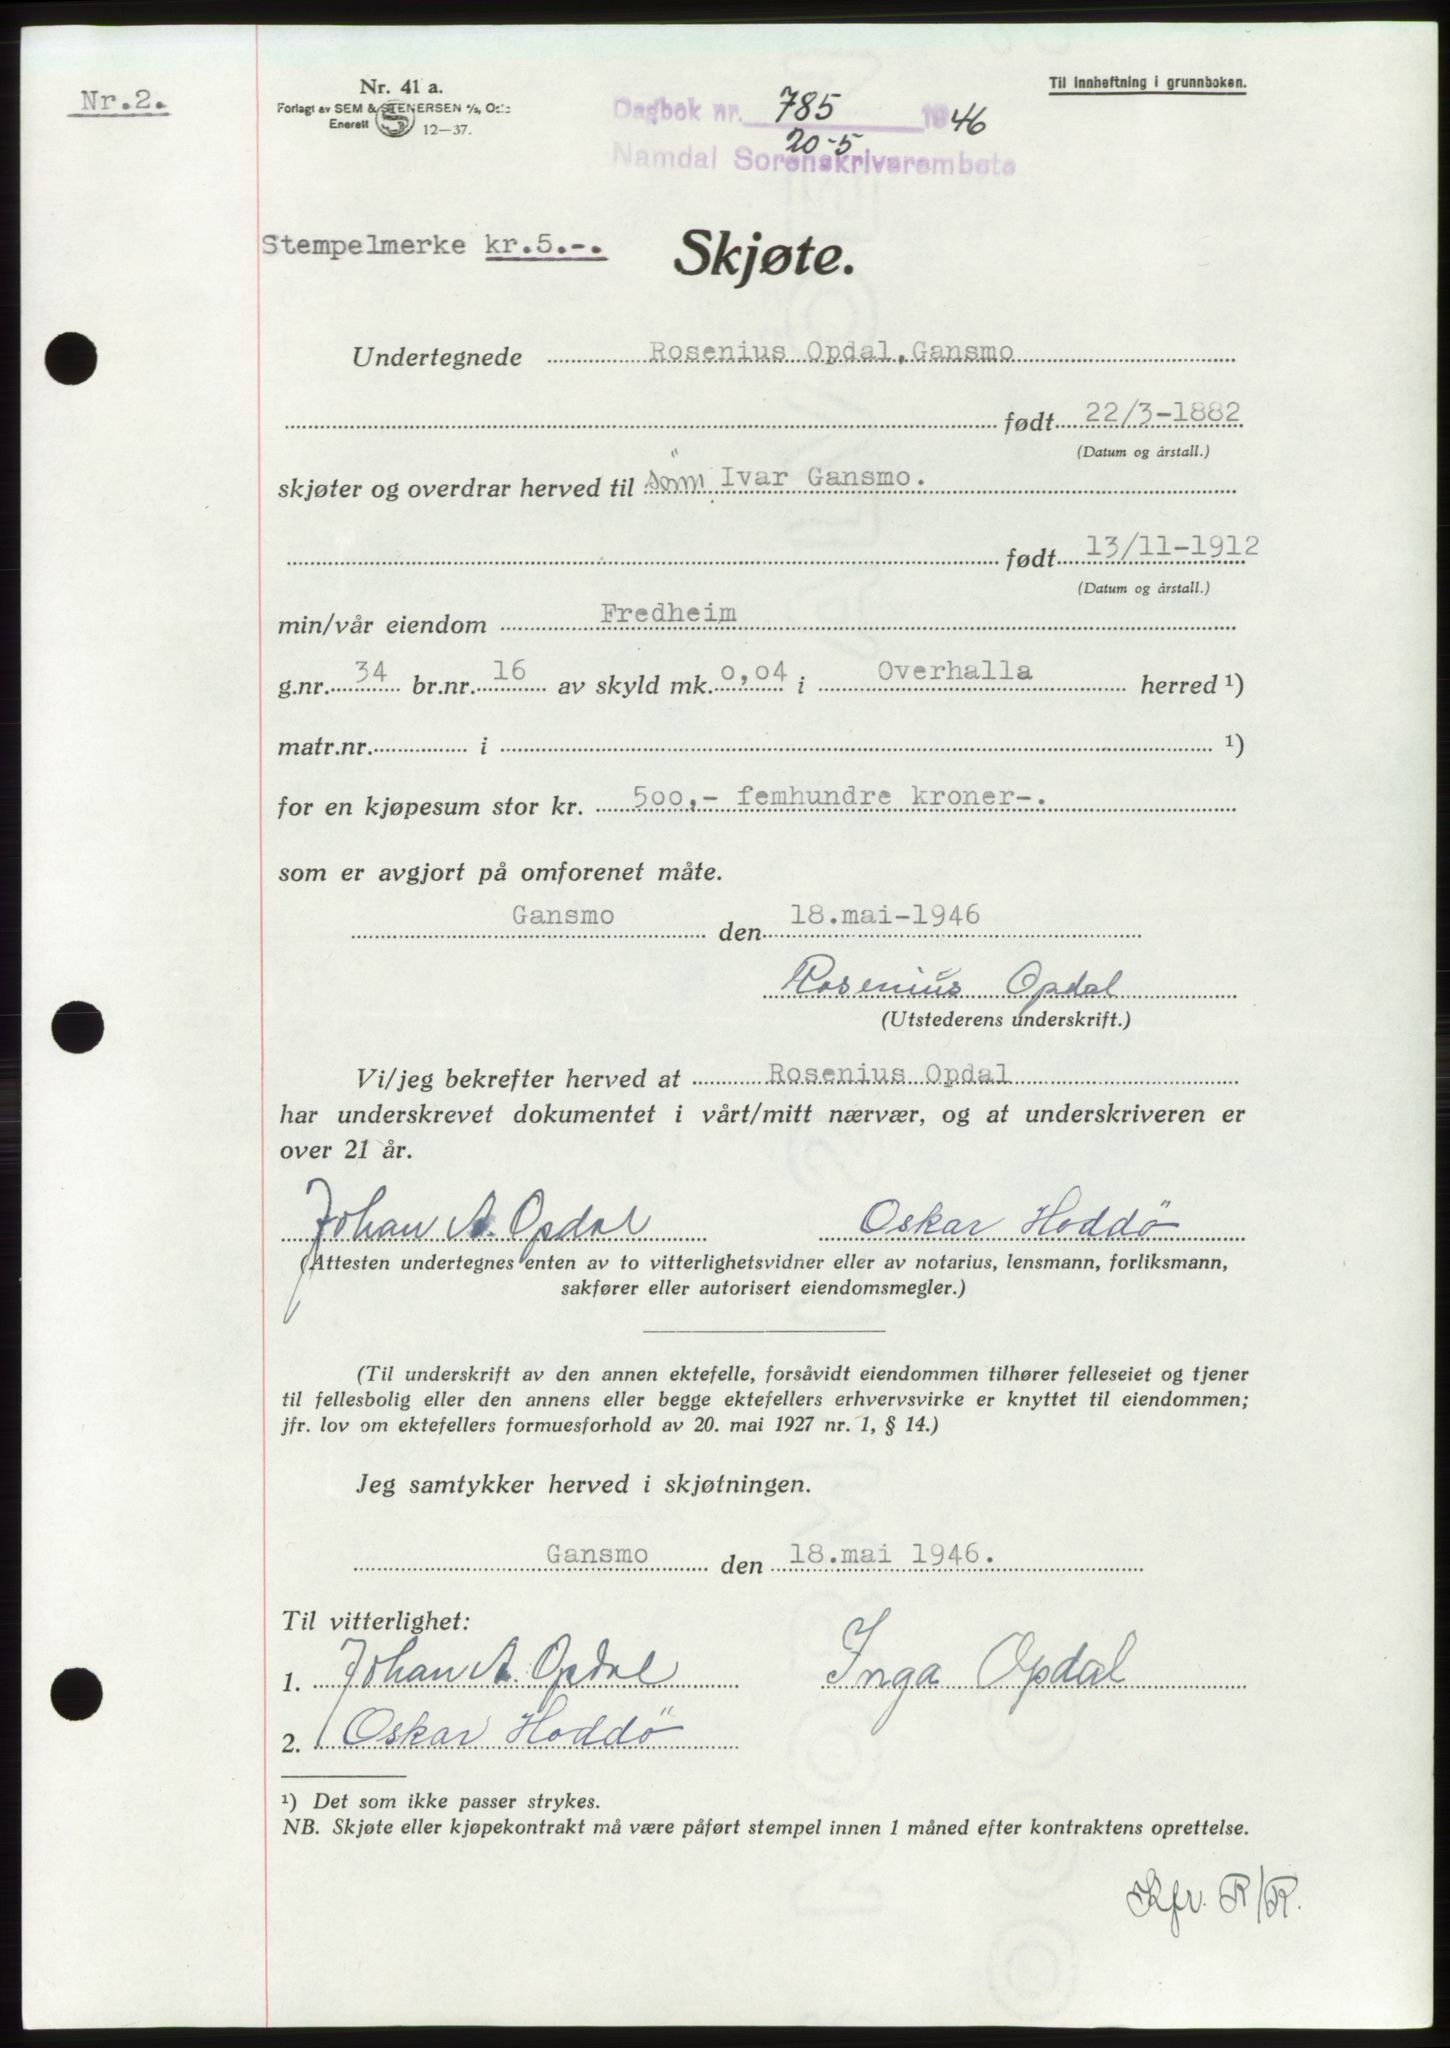 Nr.2.
Nr. 41 a.
Forlagt av SEM & STENERSEN A/S, Oslo
Enerett 12—37.
Til innheftning i grunnboken.
Dagbok nr. 785 1946
20-5
Namdal Sorenskriverembete
Stempelmerke kr.5.-.
Skjøte.
Undertegnede Rosenius Opdal, Gansmo
født 22/3-1882
(Datum og årstall.)
skjøter og overdrar herved til Ivar Gansmo.
født 13/11-1912
(Datum og årstall.)
min/vår eiendom Fredheim
g.nr. 34 br.nr. 16 av skyld mk. 0,04 i Overhalla herred ¹)
matr.nr. i ¹)
for en kjøpesum stor kr. 500,- femhundre kroner-.
som er avgjort på omforenet måte.
Gansmo den 18.mai-1946
Rosenius Opdal
(Utstederens underskrift.)
Vi/jeg bekrefter herved at Rosenius Opdal
har underskrevet dokumentet i vårt/mitt nærvær, og at underskriveren er
over 21 år.
Johan A. Opdal Oskar Hoddö
(Attesten undertegnes enten av to vitterlighetsvidner eller av notarius, lensmann, forliksmann,
sakfører eller autorisert eiendomsmegler.)
(Til underskrift av den annen ektefelle, forsåvidt eiendommen tilhører felleseiet og tjener
til fellesbolig eller den annens eller begge ektefellers erhvervsvirke er knyttet til eiendommen;
jfr. lov om ektefellers formuesforhold av 20. mai 1927 nr. 1, § 14.)
Jeg samtykker herved i skjøtningen.
Gansmo den 18.mai 1946.
Til vitterlighet:
1. Johan A. Opdal Inga Opdal
2. Oskar Hoddö
¹) Det som ikke passer strykes.
NB. Skjøte eller kjøpekontrakt må være påført stempel innen 1 måned efter kontraktens oprettelse.
Kfr. R/R.